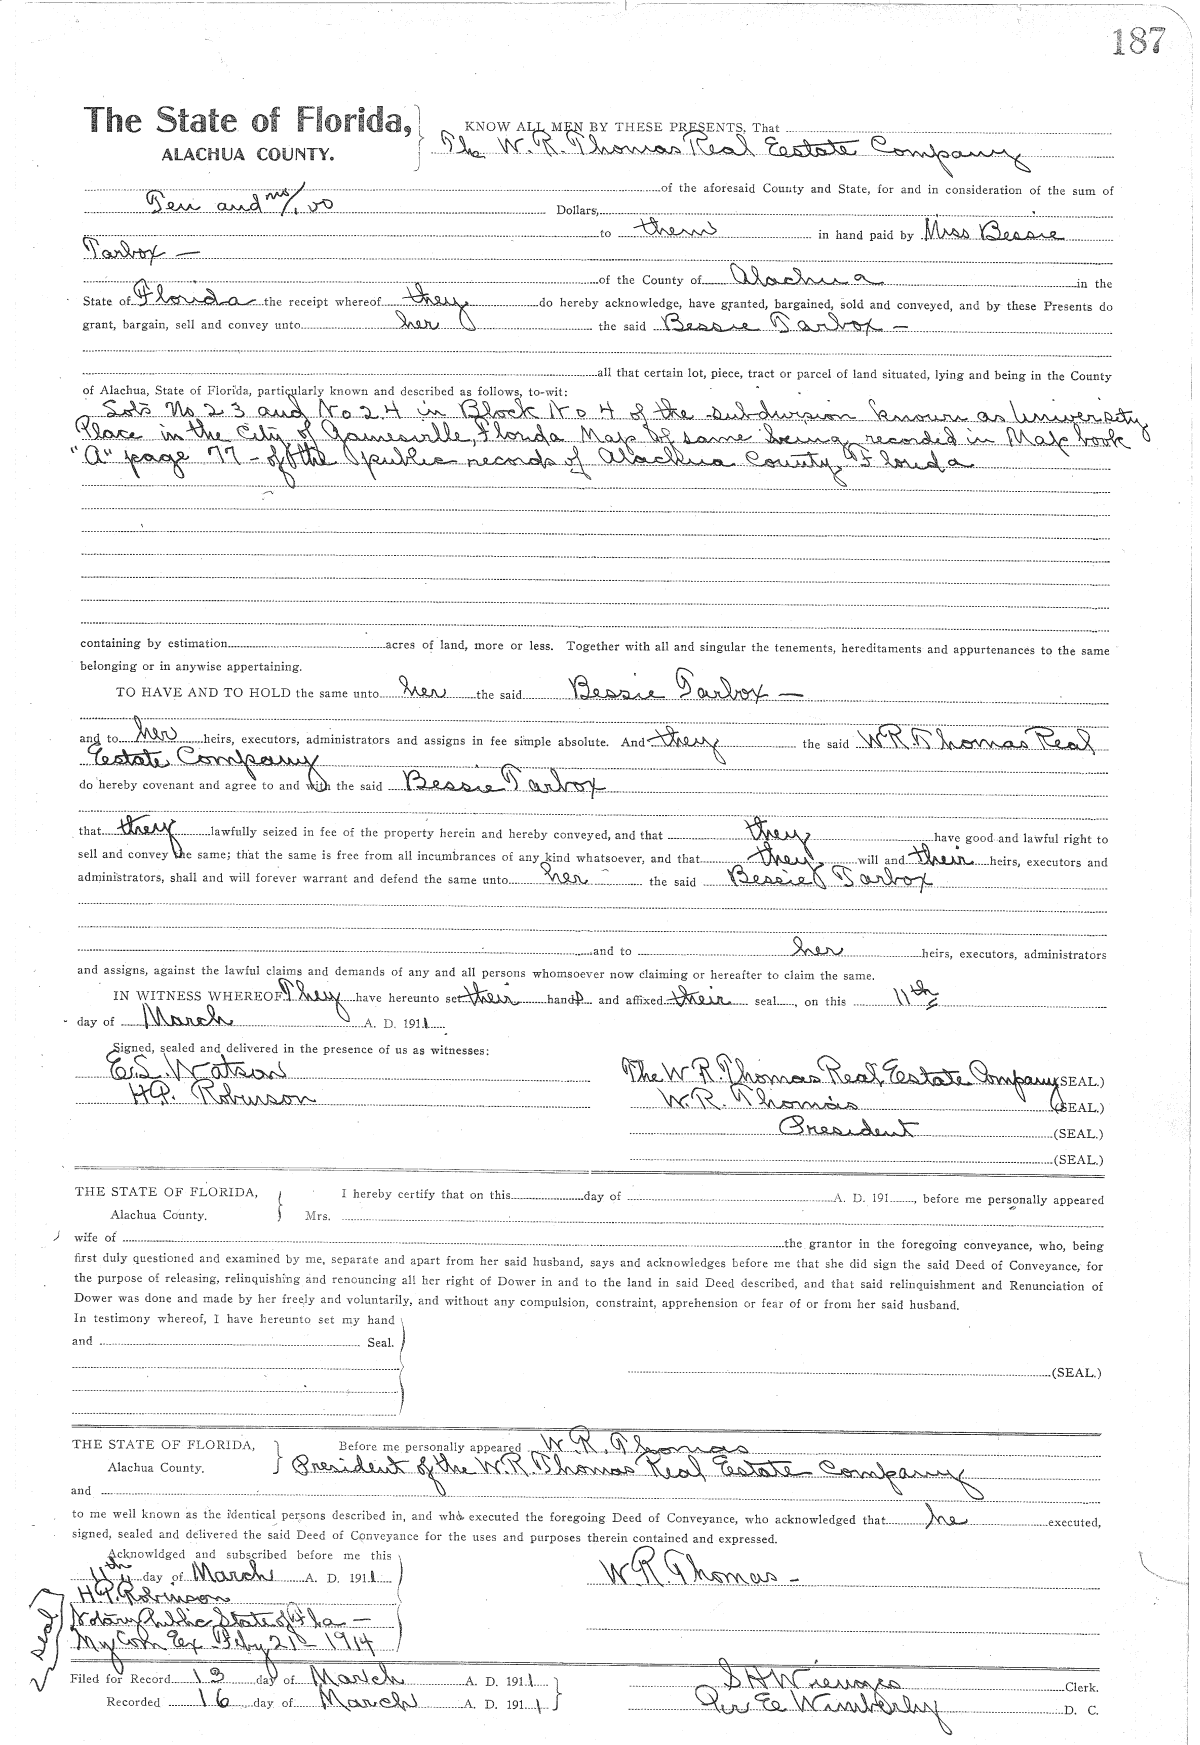 187
The State of Florida,
ALACHUA COUNTY.
KNOW ALL MEN BY THESE PRESENTS, That
The W. R. Thomas Real Eestate Company
of the aforesaid County and State, for and in consideration of the sum of
Ten and no/100 Dollars,
to them in hand paid by Miss Bessie
Tarbox —
of the County of Alachua in the
State of Florida the receipt whereof they do hereby acknowledge, have granted, bargained, sold and conveyed, and by these Presents do
grant, bargain, sell and convey unto her the said Bessie Tarbox —
all that certain lot, piece, tract or parcel of land situated, lying and being in the County
of Alachua, State of Florida, particularly known and described as follows, to-wit:
Lots No 23 and No 24 in Block No 4 of the subdivision known as University
Place in the City of Gainesville, Florida Map of same being recorded in Map book
"A" page 77 - of the public records of Alachua County Florida
containing by estimation acres of land, more or less. Together with all and singular the tenements, hereditaments and appurtenances to the same
belonging or in anywise appertaining.
TO HAVE AND TO HOLD the same unto her the said Bessie Tarbox —
and to her heirs, executors, administrators and assigns in fee simple absolute. And they the said W R Thomas Real
Estate Company
do hereby covenant and agree to and with the said Bessie Tarbox
that they lawfully seized in fee of the property herein and hereby conveyed, and that they have good and lawful right to
sell and convey the same; that the same is free from all incumbrances of any kind whatsoever, and that they will and their heirs, executors and
administrators, shall and will forever warrant and defend the same unto her the said Bessie Tarbox
and to her heirs, executors, administrators
and assigns, against the lawful claims and demands of any and all persons whomsoever now claiming or hereafter to claim the same.
IN WITNESS WHEREOF They have hereunto set their hand and affixed their seal, on this 11th
day of March A. D. 1911
Signed, sealed and delivered in the presence of us as witnesses:
E.S. Watson The W R. Thomas Real Estate Company (SEAL.)
H.P. Robinson W. R. Thomas (SEAL.)
President (SEAL.)
(SEAL.)
THE STATE OF FLORIDA,
Alachua County.
I hereby certify that on this day of A. D. 191, before me personally appeared
Mrs.
wife of the grantor in the foregoing conveyance, who, being
first duly questioned and examined by me, separate and apart from her said husband, says and acknowledges before me that she did sign the said Deed of Conveyance, for
the purpose of releasing, relinquishing and renouncing all her right of Dower in and to the land in said Deed described, and that said relinquishment and Renunciation of
Dower was done and made by her freely and voluntarily, and without any compulsion, constraint, apprehension or fear of or from her said husband.
In testimony whereof, I have hereunto set my hand
and Seal.
(SEAL.)
THE STATE OF FLORIDA,
Alachua County.
Before me personally appeared W. R. Thomas
President of the W. R. Thomas Real Estate Company
and
to me well known as the identical persons described in, and who executed the foregoing Deed of Conveyance, who acknowledged that he executed,
signed, sealed and delivered the said Deed of Conveyance for the uses and purposes therein contained and expressed.
Acknowldged and subscribed before me this
11th day of March A. D. 1911 W R Thomas -
H.P. Robinson
Notary Public State of Fla —
My Com Ex Feby 21 - 1914
seal
Filed for Record 13 day of March A. D. 1911 S H Wienges Clerk.
Recorded 16 day of March A. D. 1911 Per E e Wimberly D. C.